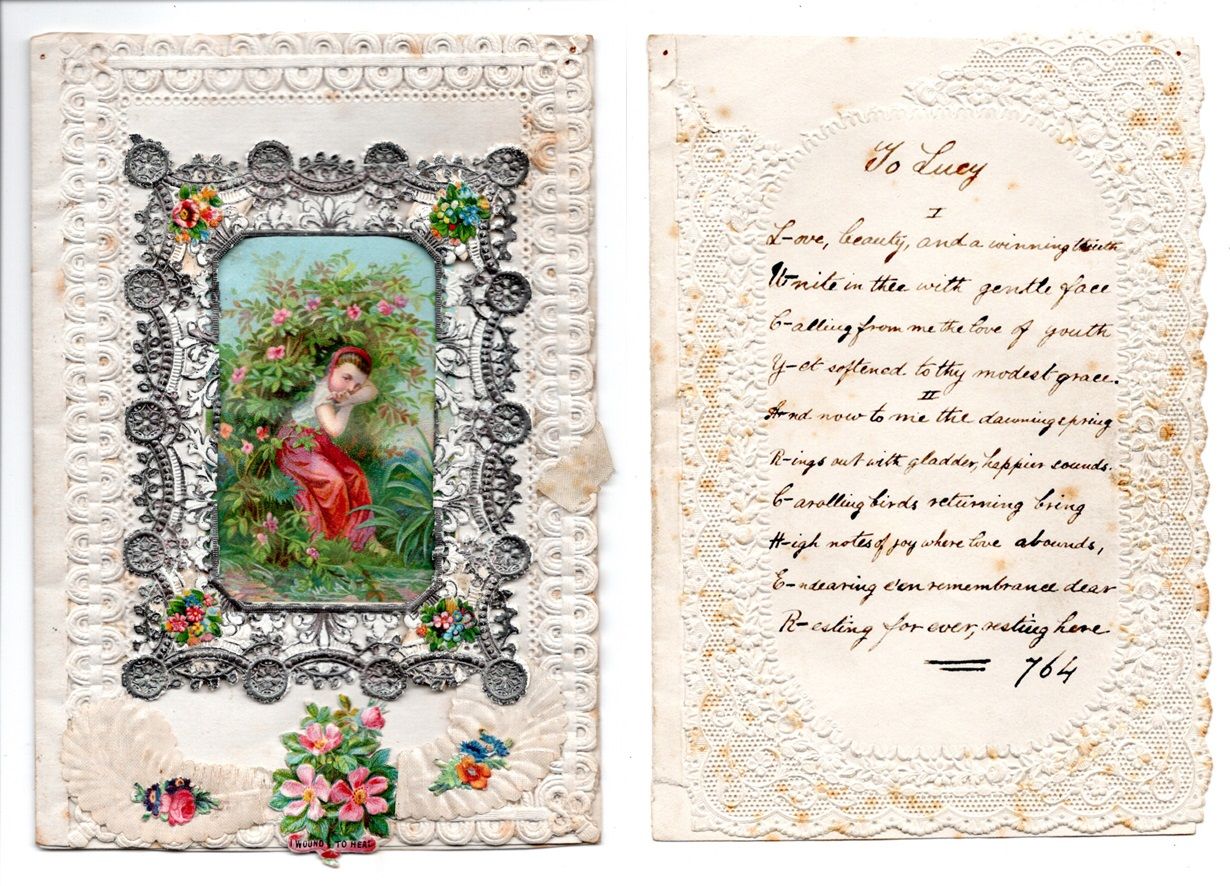 I WOUND TO HEAL
To Lucy
I
L-ove, beauty, and a winning truth
U-nite in thee with gentle face
C-alling from me the love of youth
Y-et softened to thy modest grace.
II
A-nd now to me the dawning spring
R-ings out with gladder, happier sounds.
C-arolling birds returning bring
H-igh notes of joy where love abounds,
E-ndearing e'en remembrance dear
R-esting for ever, resting here
764